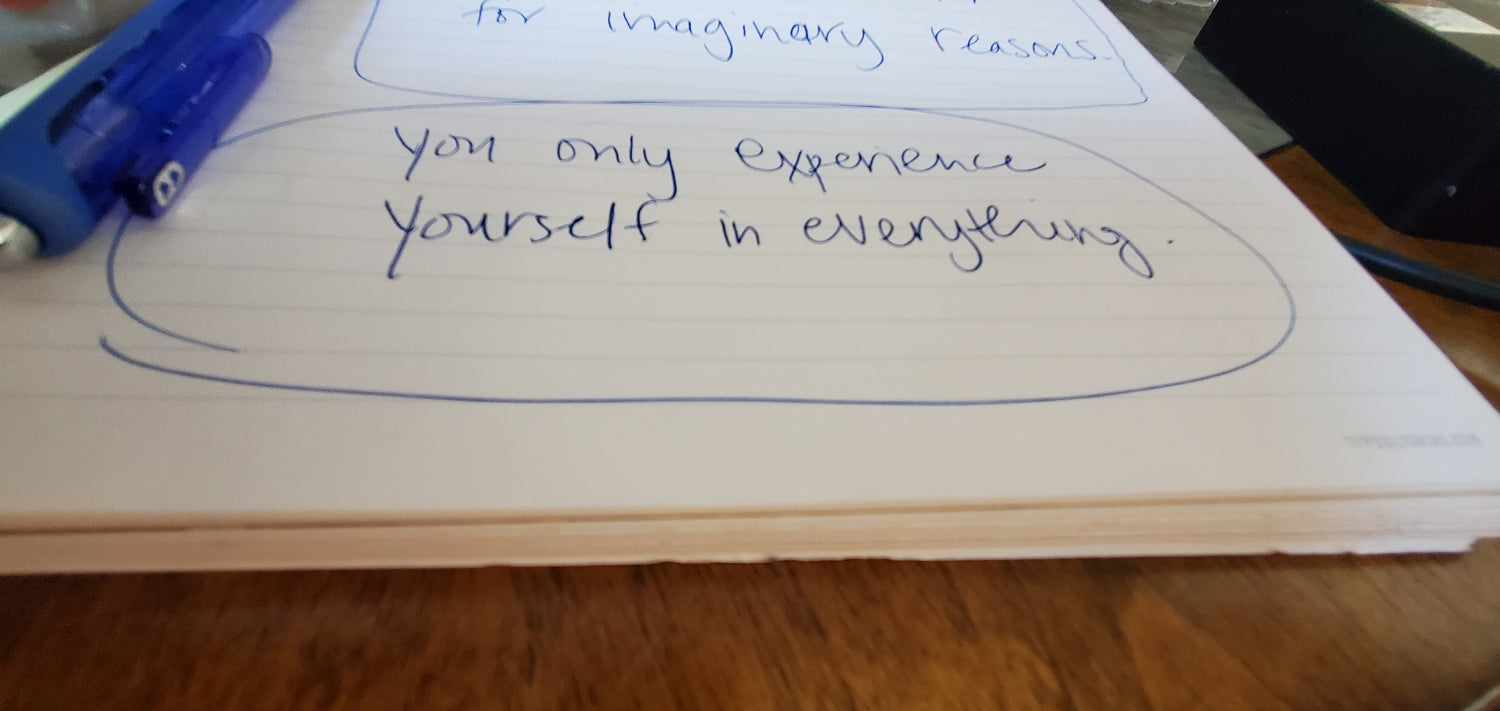 for imaginary reasons.
you only experience
yourself in everything.
B